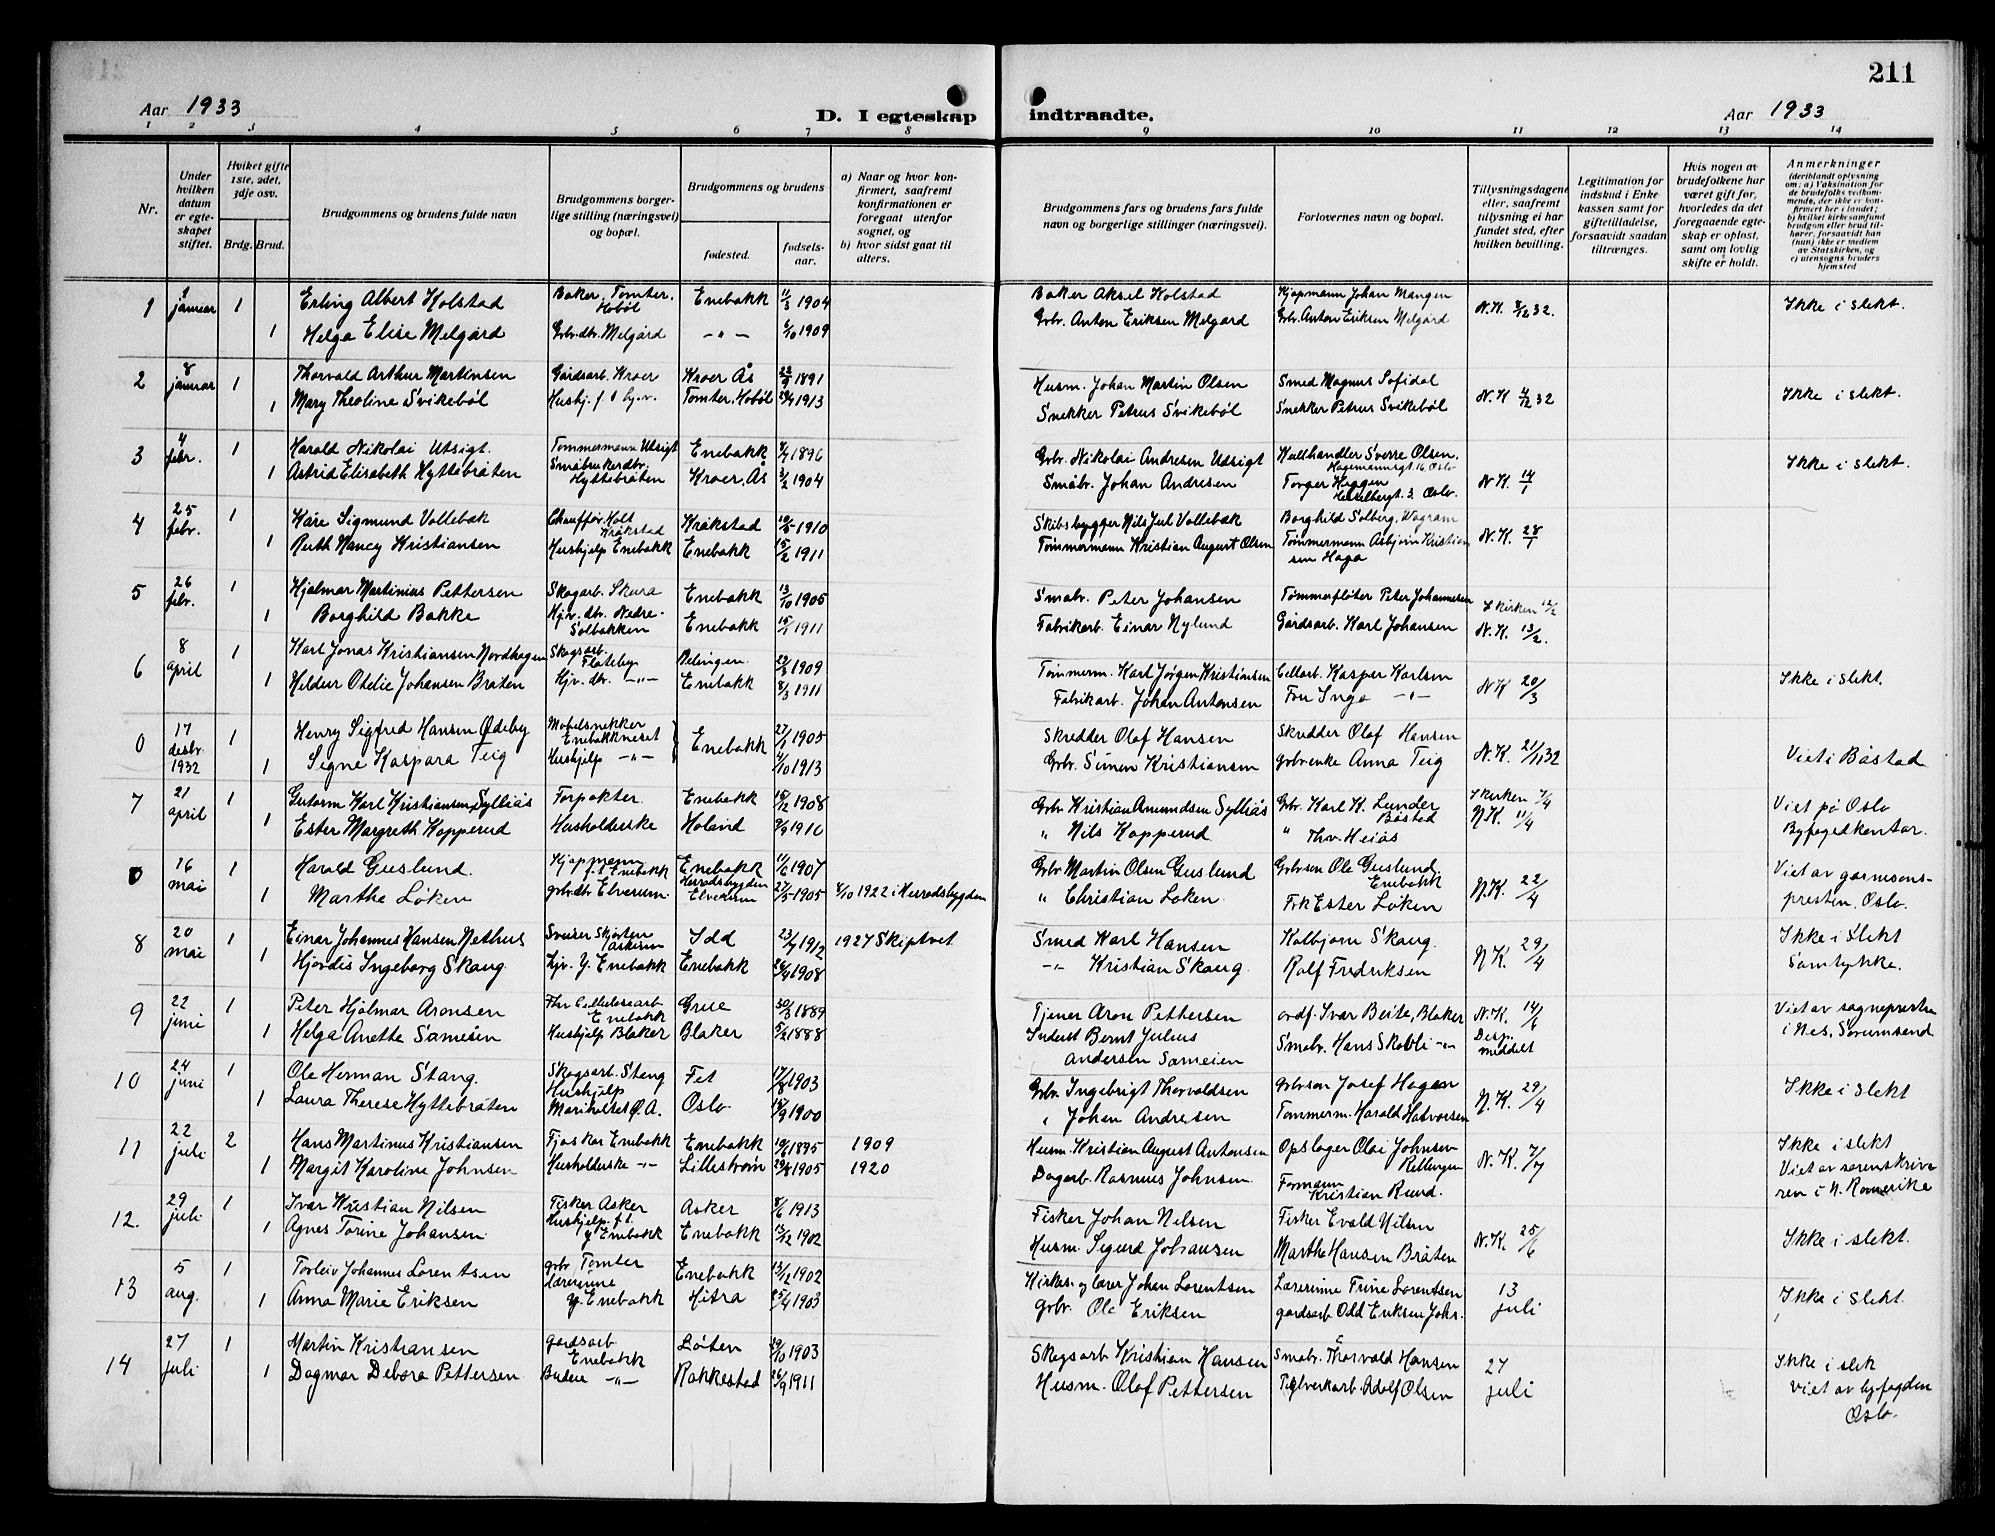 211
Aar 1933
D. I egteskap indtraadte.
Aar 1933
1 2 3 4 5 6 7 8 9 10 11 12 13 14
Nr.
Under hvilken datum er egteskapet stiftet.
Hvilket gifte 1ste, 2det, 3dje osv.
Brdg. Brud.
Brudgommens og brudens fulde navn
Brudgommens borgerlige stilling (næringsvei) og bopæl.
Brudgommens og brudens
fødested.
fødselsaar.
a) Naar og hvor konfirmert, saafremt konfirmationen er foregaat utenfor sognet, og
b) hvor sidst gaat til alters.
Brudgommens fars og brudens fars fulde navn og borgerlige stillinger (næringsvei).
Forlovernes navn og bopæl.
Tillysningsdagene eller, saafremt tillysning ei har fundet sted, efter hvilken bevilling.
Legitimation for indskud i Enkekassen samt for giftetilladelse, forsaavidt saadan tiltrænges.
Hvis nogen av brudefolkene har været gift før, hvorledes da det foregaaende egteskap er opløst, samt om lovlig skifte er holdt.
Anmerkninger (deriblandt oplysning om: a) Vaksination for de brudefolks vedkommende, der ikke er konfirmert her i landet; b) hvilket kirkesamfund brudgom eller brud tilhører, forsaavidt han (hun) ikke er medlem av Statskirken, og c) utensogns bruders hjemsted
1 1 januar 1 Erling Albert Kolstad Baker, Tomter, Hobøl Enebakk 11/3 1904 Baker Aksel Kolstad Kjøpmann Johan Mangen N.K. 3/12 32. Ikke i slekt.
1 Helga Elise Melgård Grbr.dtr. Melgård —"— 6/10 1909 Grbr. Anton Eriksen Melgård Grbr. Anton Eriksen Melgård
2 8 januar 1 Thorvald Arthur Martinsen Gårdsarb. Kroer Kroer Ås 22/9 1891 Husm. Johan Martin Olsen Smed Magnus Sofidal N.K 4/12 32 Ikke i slekt.
1 Mary Theoline Svikebøl Tomter, Hobøl 29/4 1913 Snekker Petrus Svikebøl Snekker Petrus Svikebøl
3 4 febr. 1 Harald Nikolai Utsigt. Tømmermann Utsigt Enebakk 4/4 1896 Grbr. Nikolai Andresen Utsigt Kullhandler Sverre Olsen, Hagemannsgt 16 Oslo N.K. 14/1 Ikke i slekt.
1 Astrid Elisabeth Hyttebråten Småbrukerdtr. Hyttebråten Kroer, Ås 3/2 1904 Småbr. Johan Andresen Torger Heggen Hesselbergt. 3. Oslo.
4 25 febr. 1 Kåre Sigmund Vollebæk Chauffør. Holt Kråkstad Kråkstad 10/5 1910 Skibsbygger Nils Jul Vollebæk Borghild Solberg, Wagram N.K. 28/1
1 Ruth Nancy Kristiansen Hushjelp Enebakk Enebakk 15/2 1911 Tømmermann Kristian August Olsen Tømmermann Asbjørn Kristiansen Haga
5 26 febr. 1 Hjalmar Martinius Pettersen Skogarb. Skura Enebakk 13/10 1905 Småbr. Peter Johansen Tømmerfløter Peter Johannesen I kirken 12/2
1 Borghild Bakke Hjv. dtr. Nedre-Solbakken Enebakk 15/1 1911 Fabrikarb. Einar Nylund Gårdsarb. Karl Johansen N.K. 13/2.
6 8 april 1 Karl Jonas Kristiansen Nordhagen Skogsarb. Flateby 29/3 1909 Tømmerm. Karl Jørgen Kristiansen Cellarb. Kasper Karlsen N.K 20/3 Ikke i slekt.
1 Hildur Otelie Johansen Bråten Hjv. dtr. —"— Enebakk 8/3 1911 Fabrikarb. Johan Antonsen Fru Inga —"—
0 17 desbr. 1932 1 Henry Sigfred Hansen Ødeby Møbelsnekker Enebakkneset Enebakk 27/1 1905 Skredder Olaf Hansen Skredder Olaf Hansen N.K. 21/11 32 Viet i Båstad
1 Signe Kaspara Teig Hushjelp —"— 4/10 1913 Grbr. Simen Kristiansen grbr.enke Anna Teig
7 21 april 1 Gutorm Karl Kristiansen Sylliås Forpakter Enebakk 18/12 1908 Grbr Kristian Amundsen Sylliås Grbr. Karl K. Lunder Båstad I kirken 7/4 N.K. 11/4 Viet på Oslo Byfogedkontor.
1 Ester Margreth Kopperud Husholderske Høland 9/9 1910 " Nils Kopperud " Thv. Heiås
0 16 mai 1 Harald Guslund. Kjøpmann f.t. Enebakk Enebakk 11/6 1907 Grbr. Martin Olsen Guslund Grbr.søn Ole Guslund, Enebakk N.K. 22/4 Viet av garnisonspresten. Oslo.
1 Marthe Løken grbr.dtr Elverum Herredsbygden Elverum 27/5 1905 8/10 1922 i Herredsbygden " Christian Løken Frk Ester Løken
8 20 mai 1 Einar Johannes Hansen Nethus Sveiser Skjørten Askim Idd 23/7 1912 1927 Skiptvet Smed Karl Hansen Kolbjørn Skaug. N.K. 29/4 Ikke i Slekt Samtykke.
1 Hjørdis Ingeborg Skaug. Hjv. Y. Enebakk Enebakk 26/4 1908 —"— Kristian Skaug. Rolf Fredriksen
9 22 juni 1 Peter Hjalmar Aronsen Enebakk Grue 30/3 1889 Tjener Aron Pettersen ordf. Ivar Beite, Blaker N.K. 14/6 Viet av sognepresten i Nes, Sørumsand
1 Helga Anette Sameien Hushjelp Blaker Blaker 5/2 1888 Inderst Bernt Julius Andersen Sameien Småbr. Hans Skobli —"— Desp. meddelt
10 24 juni 1 Ole Herman Stang. Skogsarb. Stang Fet 17/8 1903 Grbr. Ingebrigt Thorvaldsen Grbrsøn Josef Hagen N.K. 29/4 Ikke i slekt
1 Laura Therese Hyttebråten Hushjelp Oslo 18/9 1900 " Johan Andresen Tømmerm. Harald Halvorsen
11 22 juli 2 Hans Martinus Kristiansen Enebakk Enebakk 19/6 1895 1909 Husm. Kristian August Antonsen Opslager Olai Johnsen Rellingen N.K. 7/7 Ikke i slekt Viet av sorenskriveren i N. Romerike
1 Margit Karoline Johnsen Husholderske —"— Lillestrøm 29/8 1905 1920 Dagarb. Rasmus Johnsen Formann Kristian Rud.
12. 29 juli 1 Ivar Kristian Nilsen Fisker Asker Asker 8/6 1913 Fisker Johan Nilsen Fisker Evald Nilsen N.K. 25/6 Ikke i slekt.
1 Agnes Torine Johansen Hushjelp f.t. Y Enebakk Enebakk 13/12 1902 Husm. Sigurd Johansen Marthe Hansen Bråten
13 5 aug. 1 Torleiv Johannes Lorentsen grbr Tomter Enebakk 13/12 1902 Kirkes. og lærer Johan Lorentsen Lærerinne Trine Lorentsen 13 juli Ikke i slekt.
1 Anna Marie Eriksen Lærerinne Y. Enebakk Hitra 25/4 1903 Grbr. Ole Eriksen gårdsarb. Odd Eriksen Johs.
14 27 juli 1 Martin Kristiansen gårdsarb Enebakk Løiten 29/10 1903 Skogsarb Kristian Hansen Småbr. Thorvald Hansen 27 juli Ikke i slek Viet av byfogden Oslo.
1 Dagmar Debora Pettersen Budeie —"— Rakkestad 26/9 1911 Husm. Olaf Pettersen Teglverkarb. Adolf Olsen